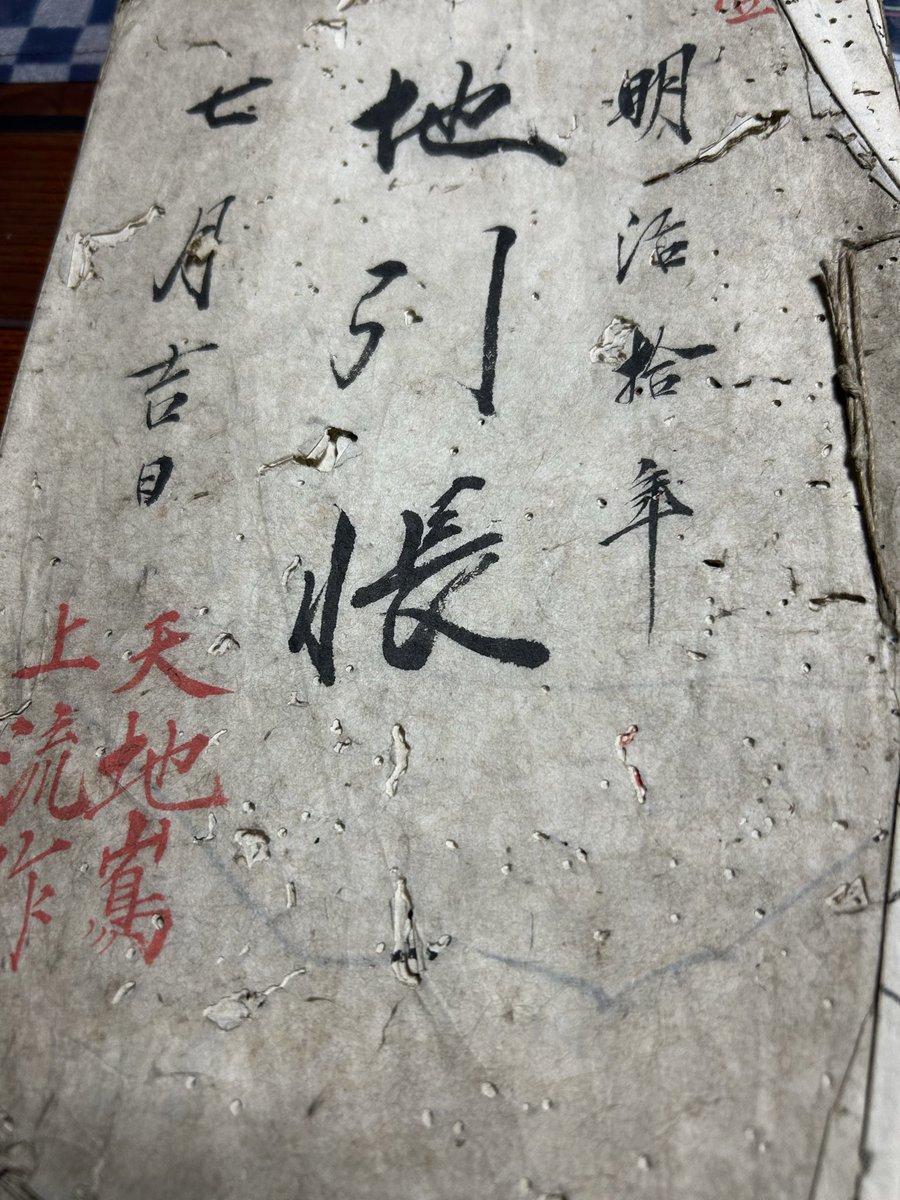 明治拾年
地引帳
七月吉日
天地嶌
上流昨